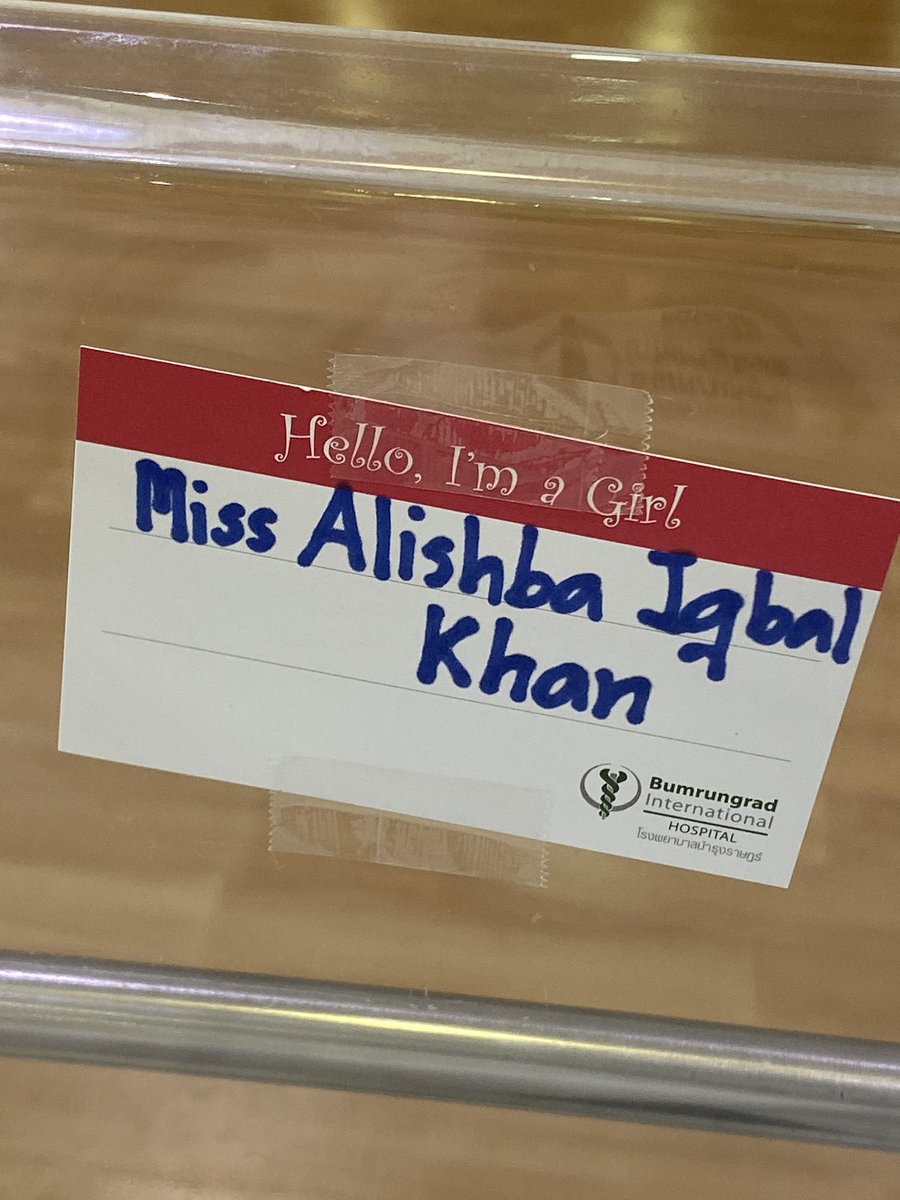 Hello, I'm a Girl
Miss Alishba Iqbal
Khan
Bumrungrad
International
HOSPITAL
โรงพยาบาลบำรุงราษฎร์